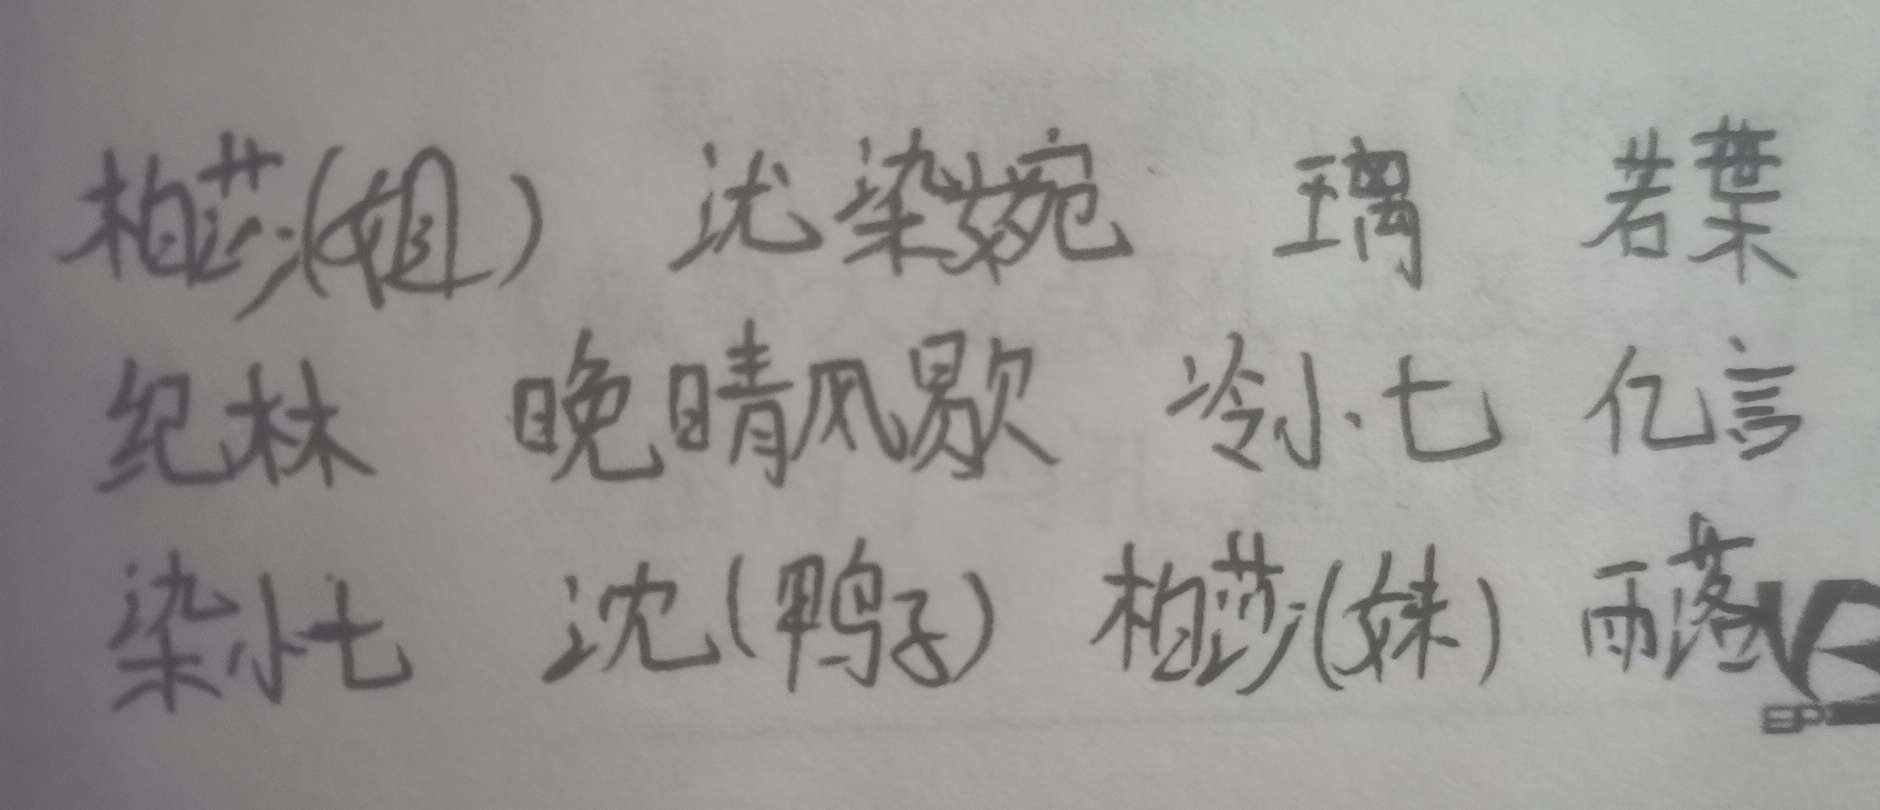 柏莎(姐) 沈染婉 璃 若葉
纪林 晚晴风歇 冷小七 亿言
染小七 沈(鸭子) 柏莎(妹) 雨落